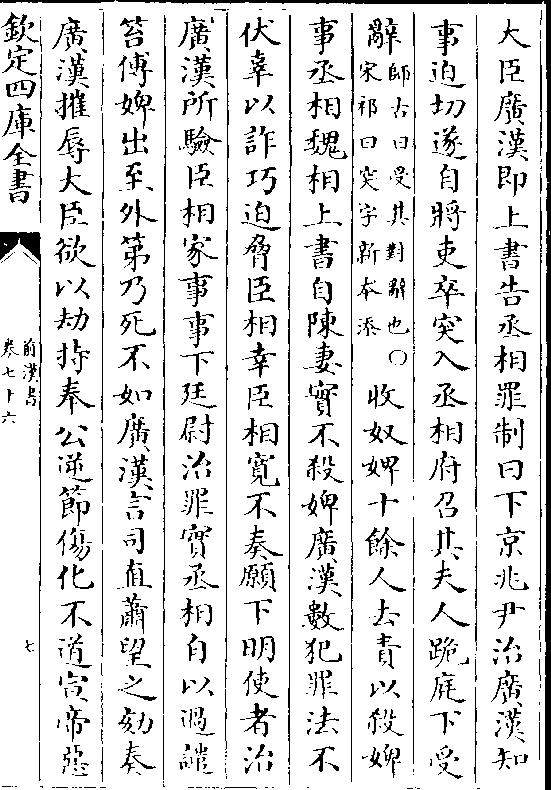 大臣廣漢即上書告丞相罪制曰下京兆尹治廣漢知
事迫切遂自將吏卒突入丞相府召其夫人跪庭下受
辭師古曰受其對辭也○
宋祁曰突字新本添
收奴婢十餘人去責以殺婢
事丞相魏相上書自陳妻實不殺婢廣漢數犯罪法不
伏辜以詐巧迫脅臣相幸臣相寛不奏願下明使者治
廣漢所驗臣相家事事下廷尉治罪實丞相自以過譴
笞傅婢出至外第乃死不如廣漢言司直蕭望之劾奏
廣漢摧辱大臣欲以劫持奉公逆節傷化不道宣帝惡
欽定四庫全書
前漢書
卷七十六
七